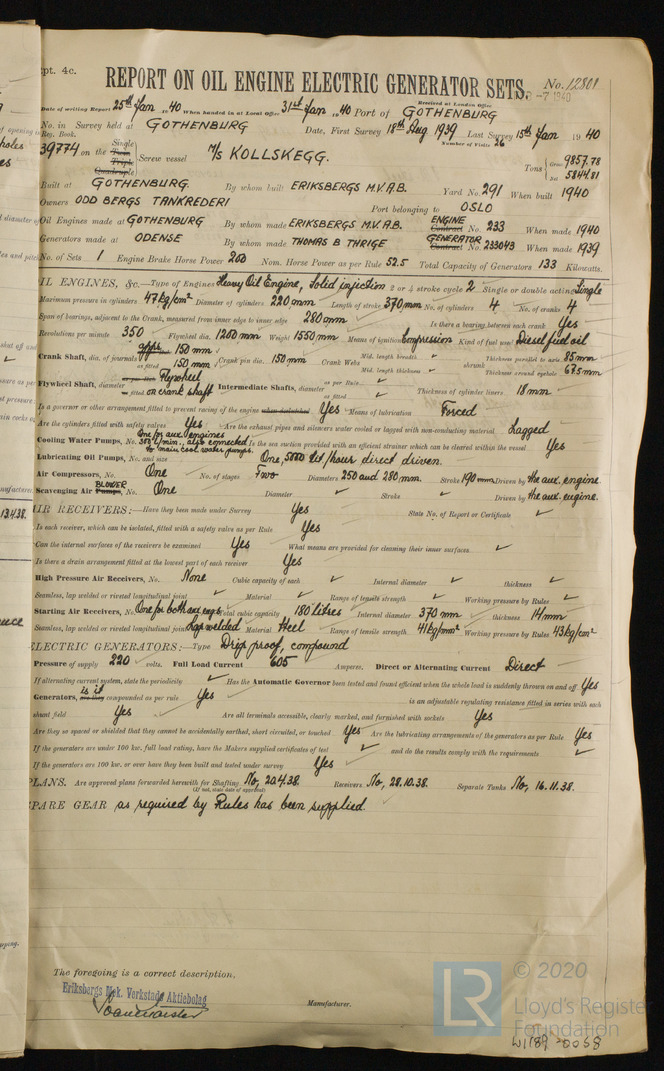 pt. 4c.
REPORT ON OIL ENGINE ELECTRIC GENERATOR SETS.
No. 12801
-7 1940
Received at London Office
Date of writing Report 25th Jan 1940 When handed in at Local Office 31st Jan 1940 Port of GOTHENBURG
No. in Survey held at GOTHENBURG Date, First Survey 18th Aug 1939 Last Survey 15th Jan 1940
Reg. Book. Number of Visits 26
39774 on the Single Twin Triple Quadruple Screw vessel M/s KOLLSKEGG. Tons Gross 9857.78 Net 5844.81
Built at GOTHENBURG. By whom built ERIKSBERGS M.V.A.B. Yard No. 291 When built 1940
Owners ODD BERGS TANKREDERI Port belonging to OSLO
Oil Engines made at GOTHENBURG By whom made ERIKSBERGS M.V.A.B. ENGINE Contract No. 233 When made 1940
Generators made at ODENSE By whom made THOMAS B THRIGE GENERATOR Contract No. 233043 When made 1939
No. of Sets 1 Engine Brake Horse Power 200 Nom. Horse Power as per Rule 52.5 Total Capacity of Generators 133 Kilowatts.
IL ENGINES, &c.—Type of Engines Heavy Oil Engine, Solid injection 2 or 4 stroke cycle 2 Single or double acting Single
Maximum pressure in cylinders 47 kg/cm² Diameter of cylinders 220 mm Length of stroke 370 mm No. of cylinders 4 No. of cranks 4
Span of bearings, adjacent to the Crank, measured from inner edge to inner edge 280 mm Is there a bearing between each crank Yes
Revolutions per minute 350 Flywheel dia. 1200 mm Weight 1550 mm Means of ignition Compression Kind of fuel used Diesel fuel oil
Crank Shaft, dia. of journals appr. 150 mm as fitted 150 mm Crank pin dia. 150 mm Crank Webs Mid. length breadth ✓ Mid. length thickness ✓ shrunk Thickness parallel to axis 85 mm Thickness around eyehole 67.5 mm
Flywheel Shaft, diameter as per Rule Flywheel as fitted on crank shaft Intermediate Shafts, diameter as per Rule ✓ as fitted ✓ Thickness of cylinder liners 18 mm
Is a governor or other arrangement fitted to prevent racing of the engine when declutched Yes Means of lubrication Forced
Are the cylinders fitted with safety valves Yes Are the exhaust pipes and silencers water cooled or lagged with non-conducting material Lagged
Cooling Water Pumps, No. One for aux. engines 300 l/min, also connected to main cool. water pumps. Is the sea suction provided with an efficient strainer which can be cleared within the vessel Yes
Lubricating Oil Pumps, No. and size One, 5000 lit/hour direct driven.
Air Compressors, No. One No. of stages Two Diameters 250 and 280 mm. Stroke 190 mm Driven by the aux. engine
Scavenging Air Pumps, BLOWER No. One Diameter ✓ Stroke ✓ Driven by the aux. engine.
AIR RECEIVERS:—Have they been made under Survey Yes State No. of Report or Certificate ✓
Is each receiver, which can be isolated, fitted with a safety valve as per Rule Yes
Can the internal surfaces of the receivers be examined Yes What means are provided for cleaning their inner surfaces ✓
Is there a drain arrangement fitted at the lowest part of each receiver Yes
High Pressure Air Receivers, No. None Cubic capacity of each ✓ Internal diameter ✓ thickness ✓
Seamless, lap welded or riveted longitudinal joint ✓ Material ✓ Range of tensile strength ✓ Working pressure by Rules ✓
Starting Air Receivers, No. One for both aux engs. Total cubic capacity 180 litres Internal diameter 370 mm thickness 14 mm
Seamless, lap welded or riveted longitudinal joint Lap welded Material Steel Range of tensile strength 41 kg/mm² Working pressure by Rules 43 kg/cm²
ELECTRIC GENERATORS:—Type Drip proof, compound
Pressure of supply 220 volts. Full Load Current 605 Amperes. Direct or Alternating Current Direct
If alternating current system, state the periodicity ✓ Has the Automatic Governor been tested and found efficient when the whole load is suddenly thrown on and off Yes
Generators, are they is it compounded as per rule Yes is an adjustable regulating resistance fitted in series with each
shunt field Yes Are all terminals accessible, clearly marked, and furnished with sockets Yes
Are they so spaced or shielded that they cannot be accidentally earthed, short circuited, or touched Yes Are the lubricating arrangements of the generators as per Rule Yes
If the generators are under 100 kw. full load rating, have the Makers supplied certificates of test ✓ and do the results comply with the requirements ✓
If the generators are 100 kw. or over have they been built and tested under survey Yes
PLANS. Are approved plans forwarded herewith for Shafting No, 20.4.38. Receivers No, 28.10.38. Separate Tanks No, 16.11.38.
(If not, state date of approval)
SPARE GEAR as required by Rules has been supplied.
The foregoing is a correct description,
Eriksbergs Mek. Verkstads Aktiebolag
Manufacturer.
LR © 2020
Lloyd's Register
Foundation
W1189-0058